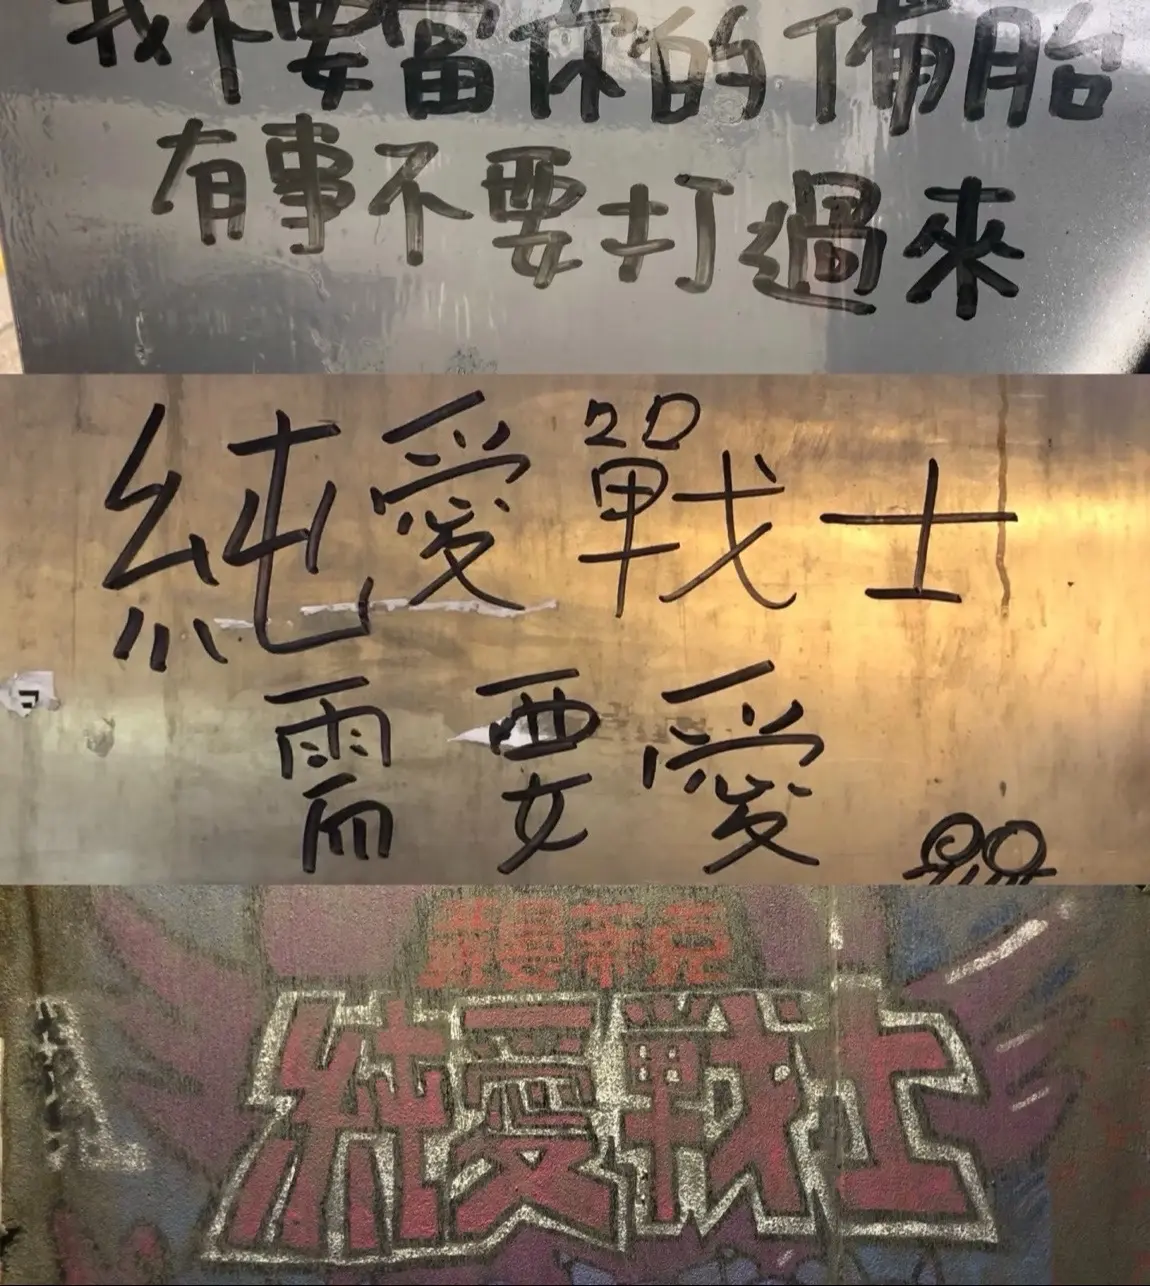 我不要當你的備胎
有事不要打過來
純愛戰士
需要愛
羅曼蒂克
純愛戰士